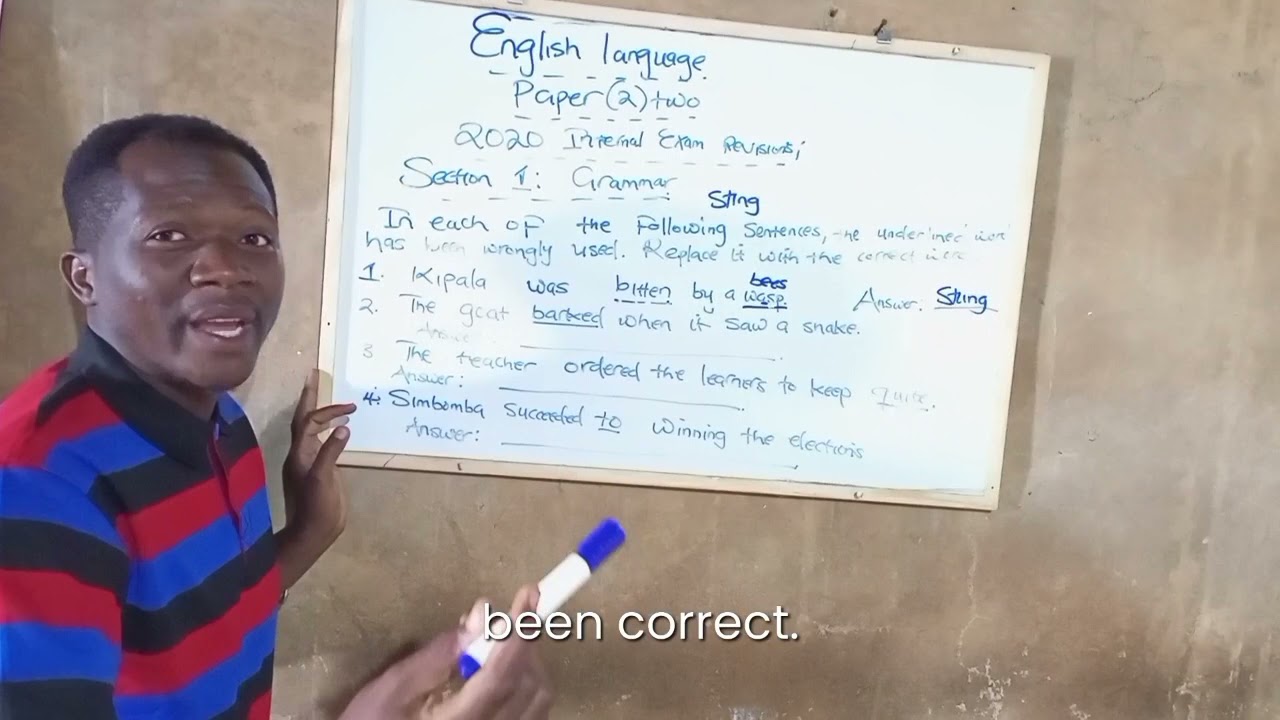 English language.
Paper (2) two
2020 Internal Exam Revisions;
Section 1: Grammar
Sting
In each of the Following Sentences, the underlined word
has been wrongly used. Replace it with the correct word
bees
1. Kipala was bitten by a wasp. Answer. Sting
2. The goat barked when it saw a snake.
Answer
3 The teacher ordered the learners to keep quite.
Answer:
4. Simbomba Succeeded to winning the elections
Answer:
been correct.